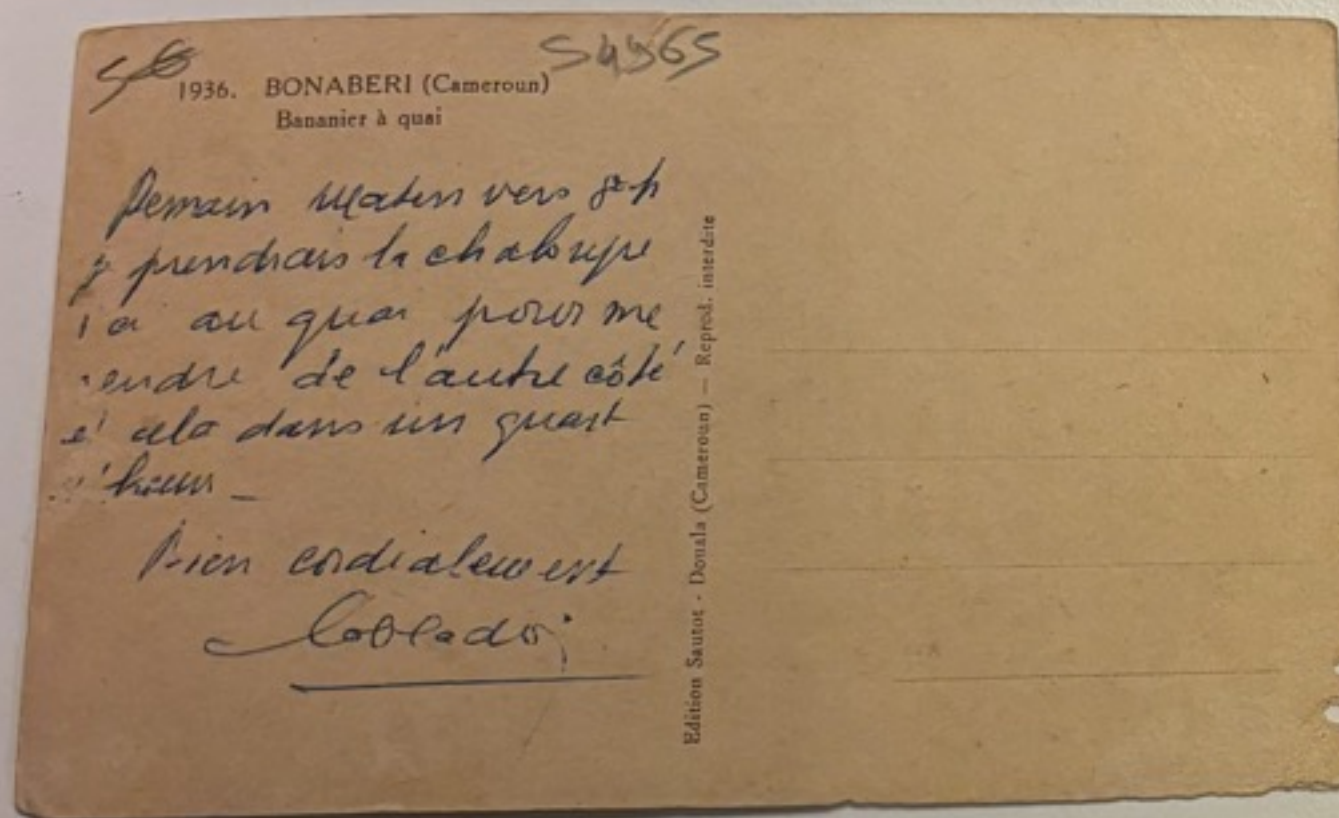 54565
1936. BONABERI (Cameroun)
Bananier à quai
Demain Matin vers 8h
je prendrais la chaloupe
au quai pour me
rendre de l'autre côté
et cela dans un quart
d'heur_
Bien cordialement
Edition Sautot - Douala (Cameroun) — Reprod. interdite